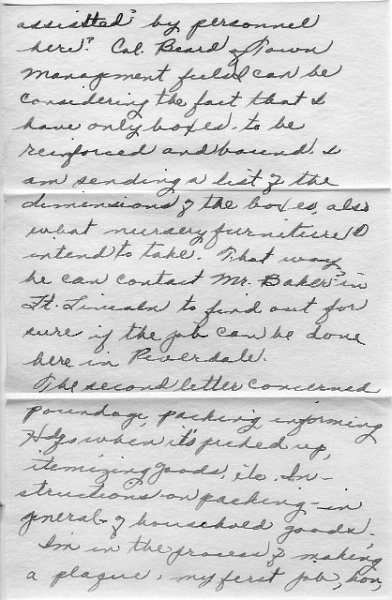 assisted by personnel
here? Col. Beard of Town
Management feels I can be
considering the fact that I
have only boxes to be
reinforced and bound. I
am sending a list of the
dimensions of the boxes, also
what nursery furniture I
intend to take. That way
he can contact Mr. Baker in
Ft. Lincoln to find out for
sure if the job can be done
here in Riverdale.
The second letter concerned
poundage, packing, informing
Hdqs when it's picked up,
itemizing goods, etc. In-
structions on packing - in
general - of household goods.
I'm in the process of making
a plaque, my first job, hon,